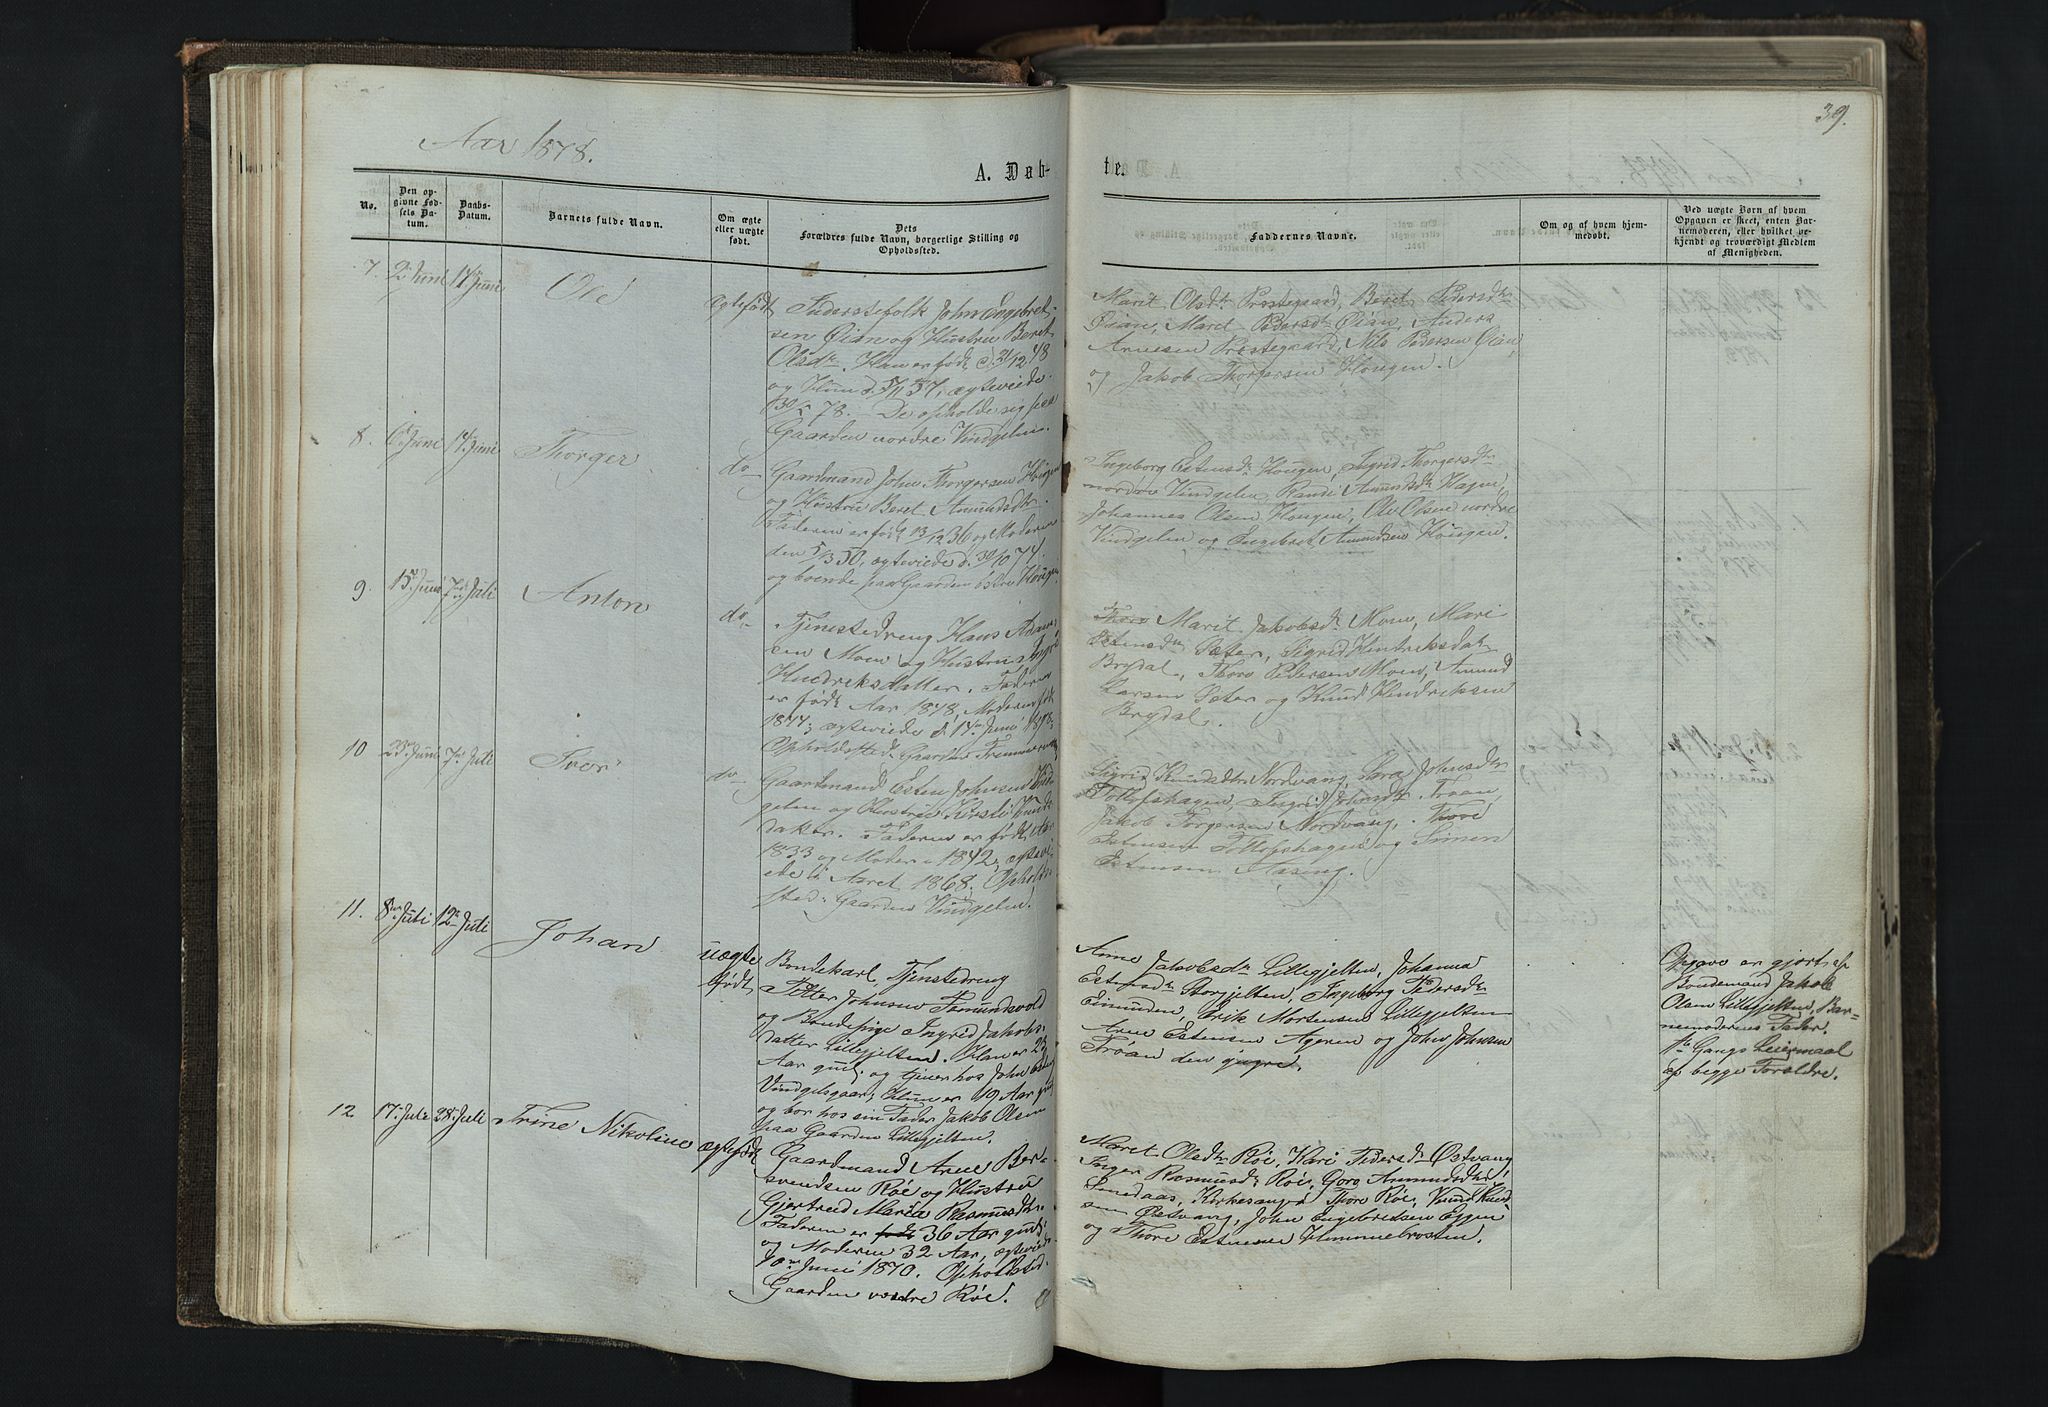 39.
Aar 1878.
A. Døb-
te.
No.
Den op-
givne Fød-
sels Da-
tum.
Daabs-
Datum.
Barnets fulde Navn.
Om ægte
eller uægte
født.
Dets
Forældres fulde Navn, borgerlige Stilling og
Opholdssted.
Faddernes Navne.
Om og af hvem hjem-
medøbt.
Ved uægte Børn af hvem
Opgaven er skeet, enten Bar-
nemoderen, eller hvilket ve-
kjendt og troværdigt Medlem
af Menigheden.
7. 2 Juni 17 Juni
Ole
ægtefødt
Inderstefolk John Engebret-
sen Øian og Hustru Beret
Olsdtr. Han er født d. 31/12 48
og Hun d. 5/11 57, ægteviede
30/5 78. De opholde sig paa
Gaarden nordre Vindgelen.
Marit Olsdtr Prestegaard, Beret Pedersdtr
Øian, Maret Pedersdtr Øian, Anders
Arnesen Prestegaard, Nils Pedersen Øian,
og Jakob Thorgersen Hougen.
8. 6 Juni 17 Juni
Thorger
do
Gaardmand John Thorgersen Hougen
og Hustru Beret Amundsdtr.
Faderen er født 13/12 36 og Moderen
den 5/3 50, ægteviede d. 30/10 74.
og boende paa Gaarden østre Hougen.
Ingeborg Estensdtr Hougen, Sigrid Thorgersdtr
nordre Vindgelen, Randi Amundsdtr Hagen,
Johannes Olsen Hougen, Ole Olsen nordre
Vindgelen og Engebret Amundsen Hougen.
9. 15 Juni 7de Juli
Anton
do
Tjenestedreng Hans
sen Moen og Hustru
Hendriksdatter. Faderen
er født Aar 1848, Moderen født
1844; ægteviede d. 14de Juni 1878;
Opholdssted Gaarden
Thore Marit Jakobsdtr Moen, Mari
Estensdtr Sæter, Sigrid Hendriksdatr
Brydal, Thore Pedersen Moen, Amund
Larsen Sæter og Knud Hendriksen
Brydal.
10 23 Juni 7de Juli
Tron
do
Gaardmand Esten Johnsen Vind-
gelen og Hustru Kirsti Knuds-
datter. Faderen er født Aar
1833 og Moderen 1842, ægtevi-
ede i Aaret 1868. Opholds-
sted: Gaarden Vindgelen.
Sigrid Knudsdtr Nordvang, Sara Johnsdtr
Tollefshagen, Ingrid Johnsdtr Troan,
Jakob Torgersen Nordvang, Thore
Estensen Tollefshagen og Simen
Estensen Aaseng.
11. 8de Juli 12te Juli
Johan
uægte
født
Bondekarl, Tjenestedreng
Petter Johnsen Tomundsvold
og Bondepige Ingrid Jakobs-
datter Lillegjelten. Han er 25
Aar gml. og tjener hos John Esten
Vindgelsgaar; Hun er 19 Aar gml
og bor hos sin Fader Jakob Olsen
paa Gaarden Lillegjelten.
Anne Jakobsdtr Lillegjelten, Johanna
Estensdtr Storgjelten, Ingeborg Pedersdtr
Eimunden, Erik Mortensen Lillegjelten
Arne Estensen Ageren og John Johnsen
Trøan den yngre.
Opgave er gjort af
Bondemand Jakob
Olsen Lillegjelten, Bar-
nemoderens Fader.
1ste Gangs Leiermaal
af begge Forældre.
12 17 Juli 28 Juli
Trine Nikoline
ægtefødt
Gaardmand Arne Ber-
svendsen Røe og Hustru
Gjertrud Maria Rasmusdtr.
Faderen er født 36 Aar gml,
og Moderen 32 Aar, ægteviede
Juni 1870. Opholdssted
Gaarden vestre Røe.
Maret Olsdtr Røe, Kari Pedersdtr Østvang,
Inger Rasmusdtr Røe, Goro Amundsdtr
Smedaas, Kirkesanger Thore Røe, Knud Knud-
sen Østvang, John Engebretsen Eggen
og Thore Estensen Himmebrosten.